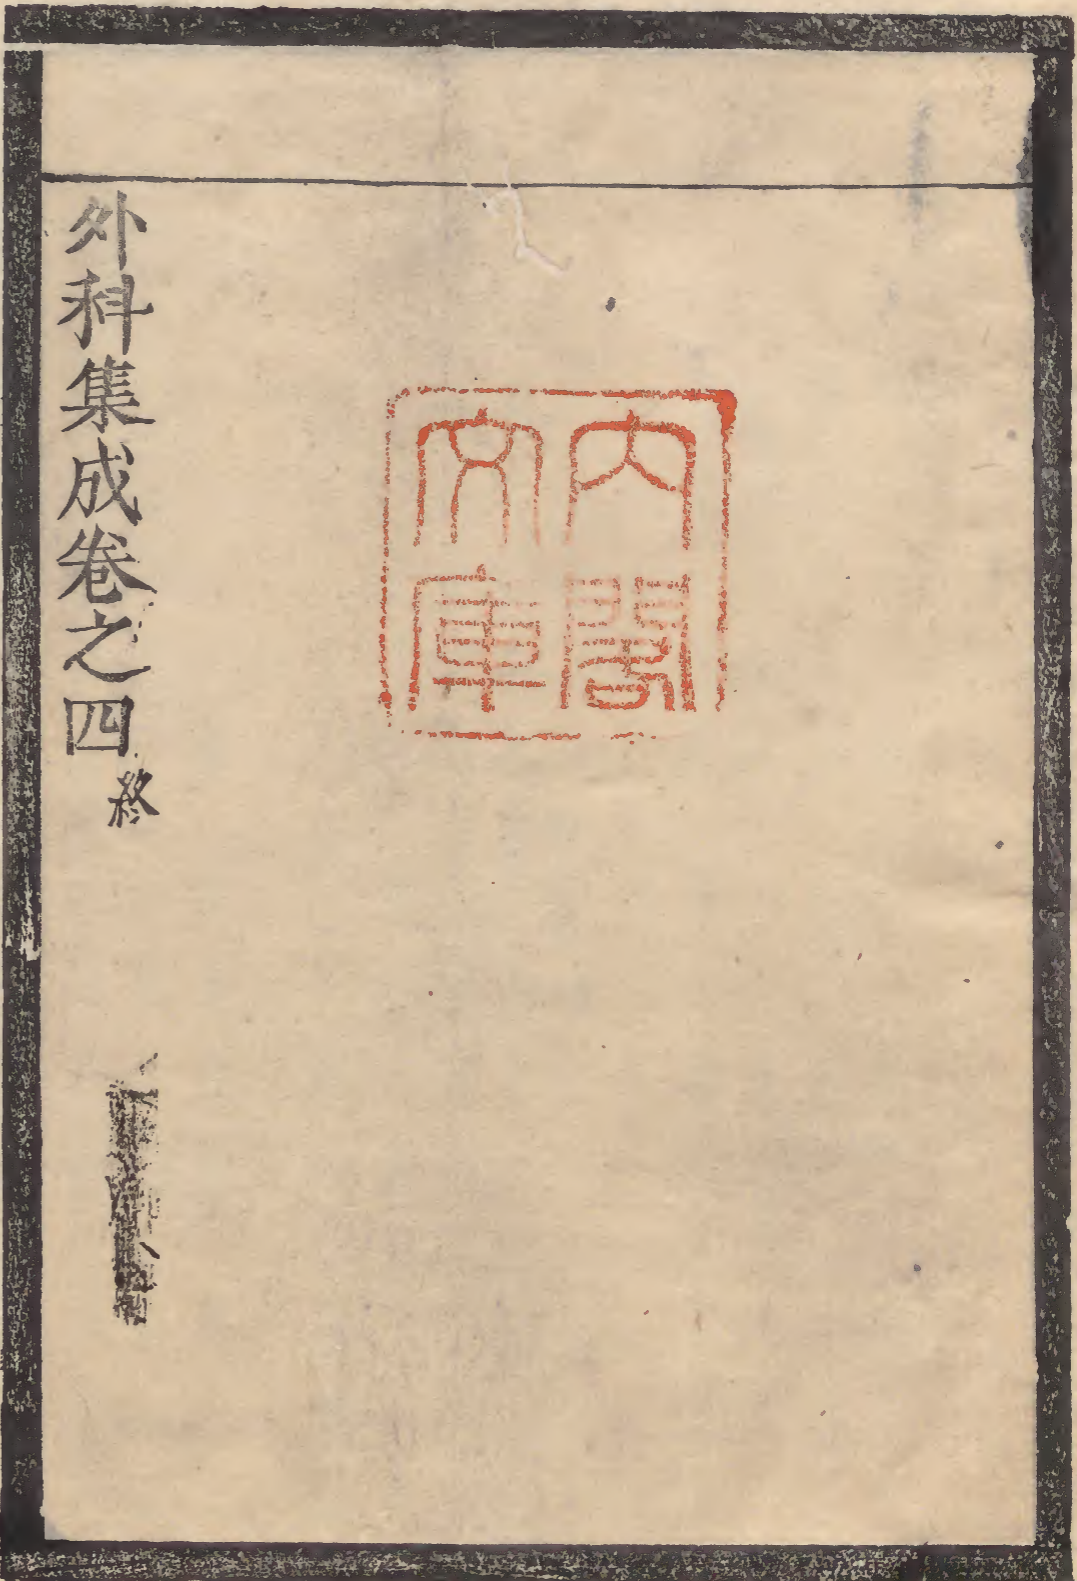 內閣
文庫
外科集成卷之四終